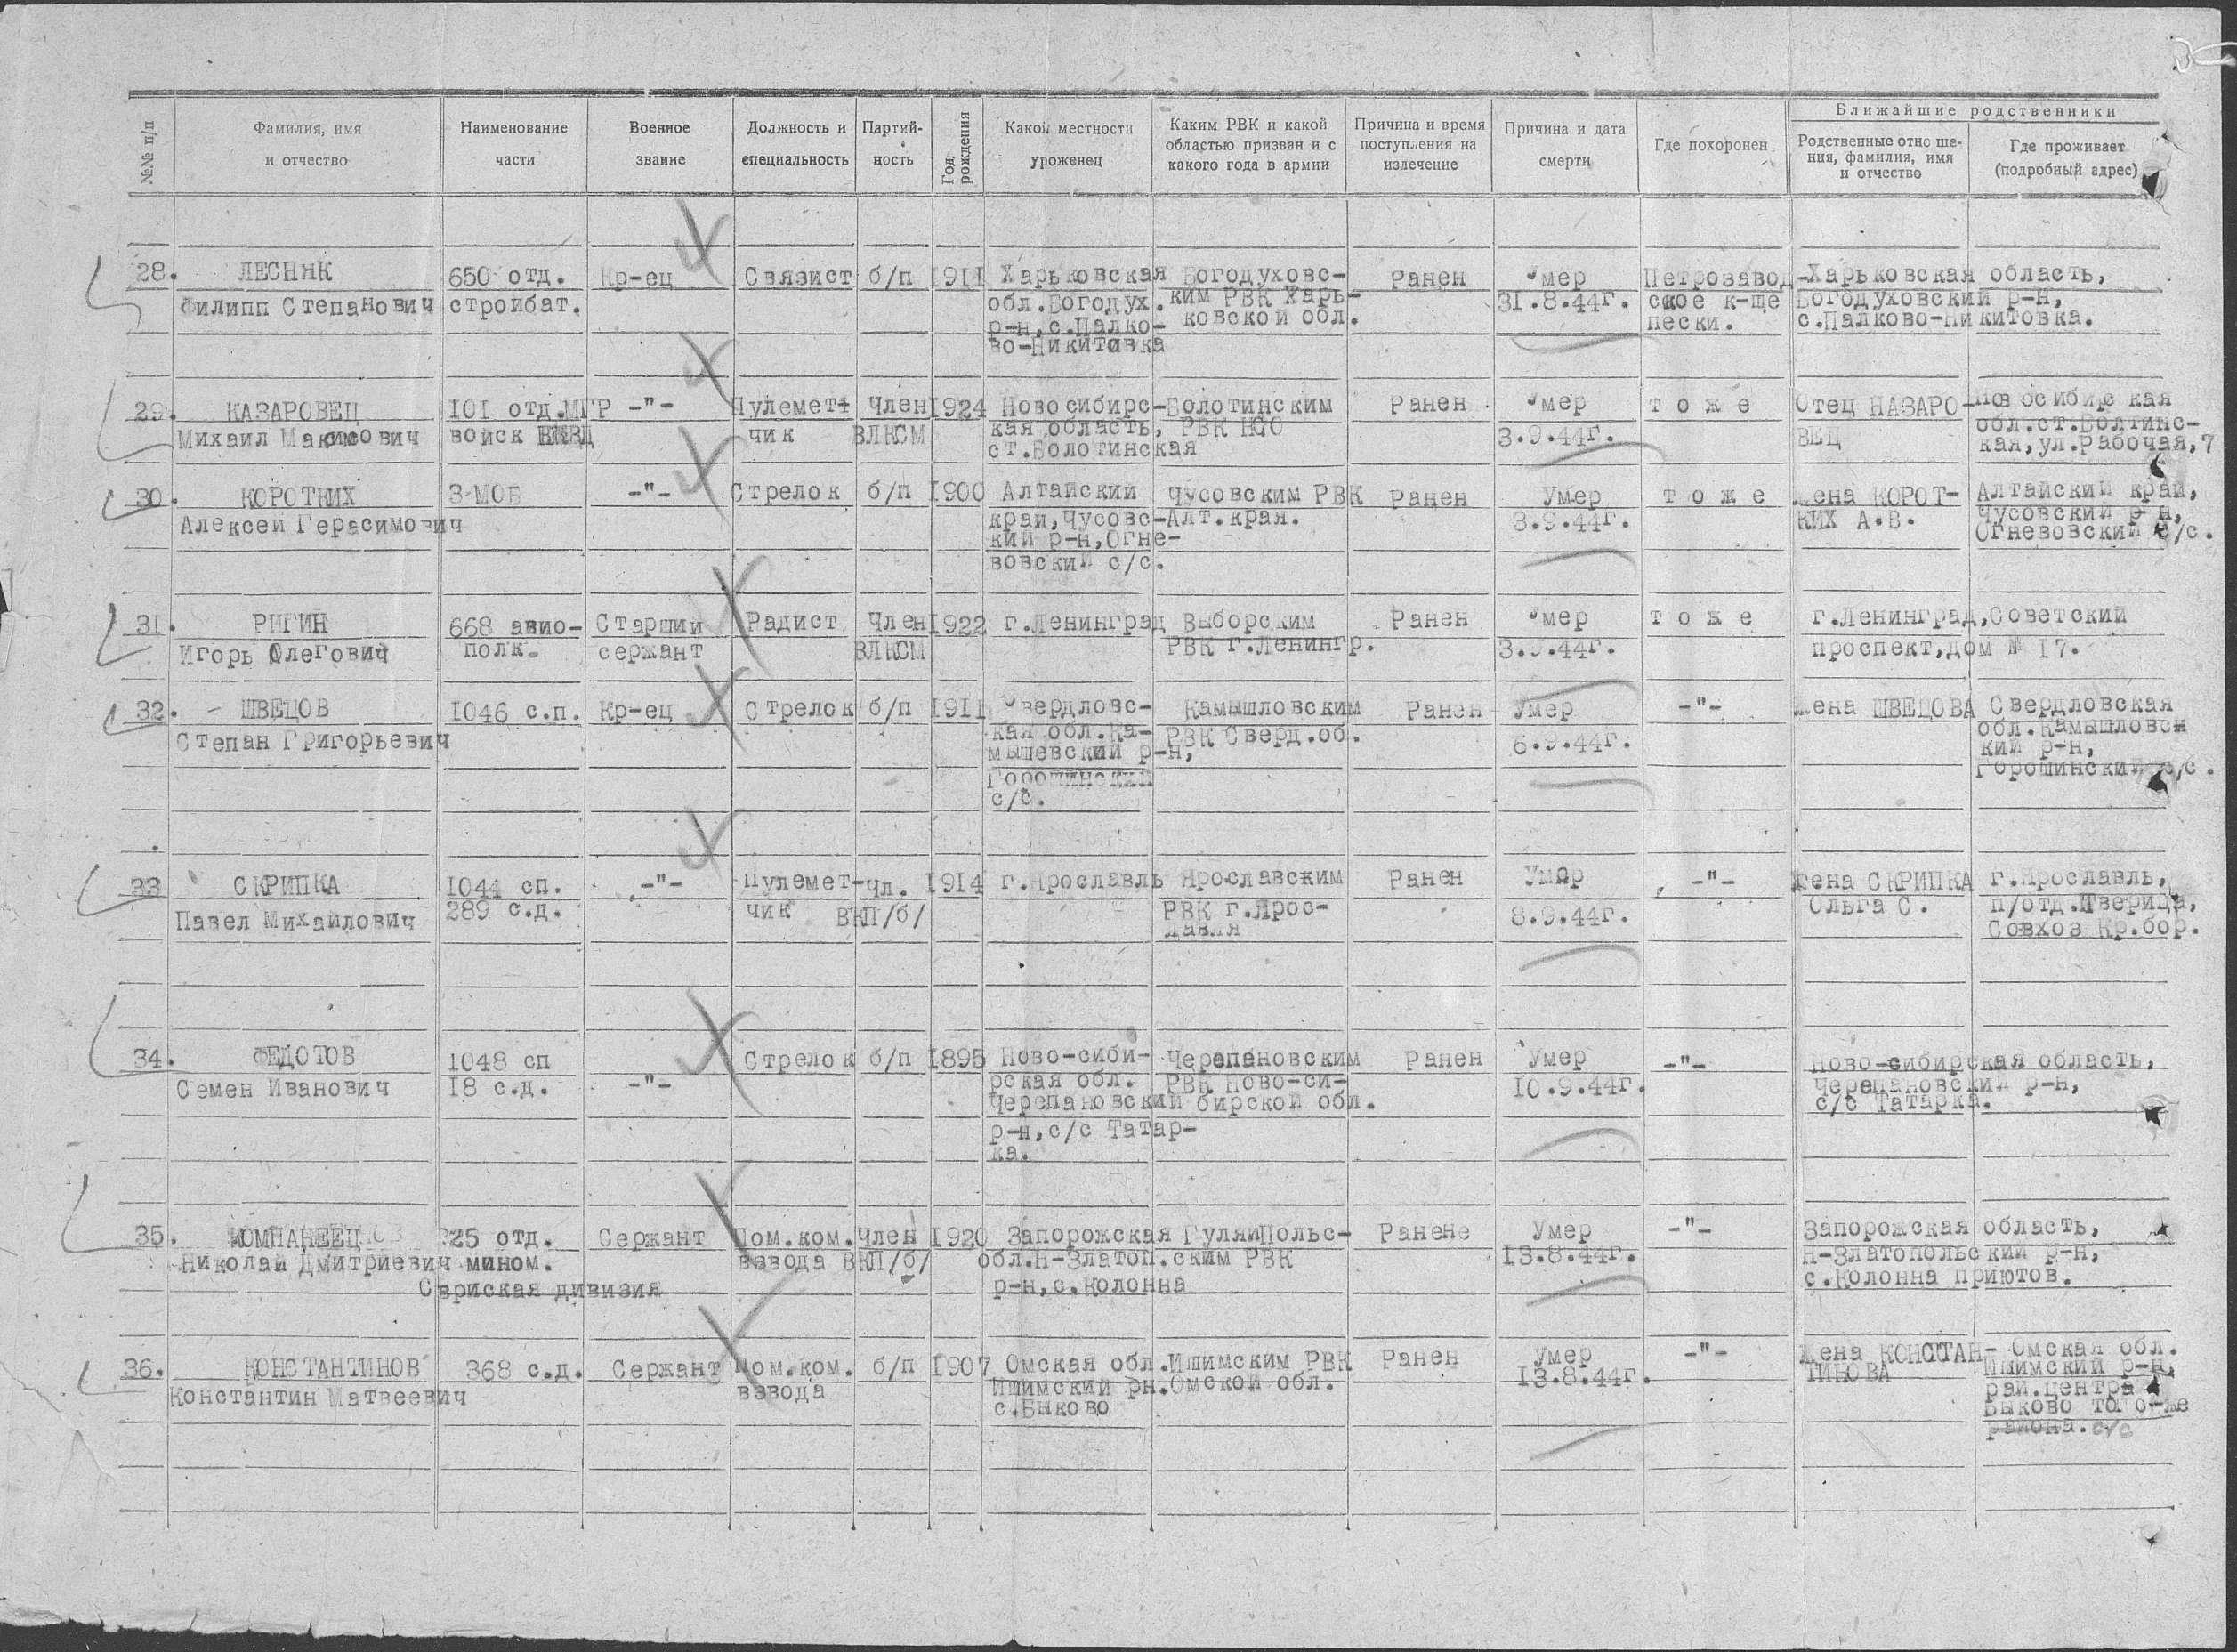 №№ п/п
Фамилия, имя
и отчество
Наименование
части
Военное
звание
Должность и
специальность
Партий-
ность
Год
рождения
Какой местности
уроженец
Каким РВК и какой
областью призван и с
какого года в армии
Причина и время
поступления на
излечение
Причина и дата
смерти
Где похоронен
Ближайшие родственники
Родственные отно ше-
ния, фамилия, имя
и отчество
Где проживает
(подробный адрес)
28.
ЛЕСНЯК
Филипп Степанович
650 отд.
стройбат.
Кр-ец
Связист
б/п
1911
Харьковская
обл.Богодух.
р-н,с.Палко-
во-Никитовка
Богодуховс-
ким РВК Харь-
ковской обл.
Ранен
Умер
31.8.44г.
Петрозавод-
ское к-ще
пески.
Харьковская область,
Богодуховский р-н,
с.Палково-Никитовка.
29.
КАЗАРОВЕЦ
Михаил Максимович
101 отд.МГР
войск НКВД
-"-
Пулемет-
чик
Член
ВЛКСМ
1924
Новосибирс-
кая область,
ст.Болотинская
Болотинским
РВК НСО
Ранен
Умер
3.9.44г.
т о ж е
Отец НАЗАРО-
ВЕЦ
Новосибирская
обл.ст.Болтинс-
кая,ул.Рабочая,7
30.
КОРОТКИХ
Алексей Герасимович
3-МОБ
-"-
Стрелок
б/п
1900
Алтайский
край,Чусовс-
кий р-н,Огне-
вовский с/с.
Чусовским РВК
Алт.края.
Ранен
Умер
3.9.44г.
т о ж е
Жена КОРОТ-
КИХ А.В.
Алтайский край,
Чусовский р-н,
Огневовский с/с.
31.
РИГИН
Игорь Олегович
668 авио-
полк.
Старший
сержант
Радист
Член
ВЛКСМ
1922
г.Ленинград
Выборским
РВК г.Ленингр.
Ранен
Умер
3.9.44г.
т о ж е
г.Ленинград,Советский
проспект,дом № 17.
32.
ШВЕЦОВ
Степан Григорьевич
1046 с.п.
Кр-ец
Стрелок
б/п
1911
Свердловс-
кая обл.Ка-
мышевский р-н,
Горошинский
с/с.
Камышловским
РВК Сверд.об.
Ранен
Умер
6.9.44г.
-"-
Жена ШВЕЦОВА
Свердловская
обл.Камышловск
кий р-н,
Горошинский с/с.
33
СКРИПКА
Павел Михайлович
1044 сп.
289 с.д.
-"-
Пулемет-
чик
Чл.
ВКП/б/
1914
г.Ярославль
Ярославским
РВК г.Ярос-
лавля
Ранен
Умер
8.9.44г.
-"-
Жена СКРИПКА
Ольга С.
г.Ярославль,
п/отд.Тверица,
Совхоз Кр.бор.
34.
ФЕДОТОВ
Семен Иванович
1048 сп
18 с.д.
-"-
Стрелок
б/п
1895
Ново-сиби-
рская обл.
Черепановский
р-н,с/с Татар-
ка.
Черепановским
РВК Ново-си-
бирской обл.
Ранен
Умер
10.9.44г.
-"-
Ново-сибирская область,
Черепановский р-н,
с/с Татарка.
35.
КОМПАНЕЕЦ
Николай Дмитриевич
325 отд.
мином.
Сврйская дивизия
Сержант
Пом.ком.
взвода
Член
ВКП/б/
1920
Запорожская
обл.Н-Златоп.
р-н,с.Колонна
ГуляйПольс-
ским РВК
Ранене
Умер
13.8.44г.
-"-
Запорожская область,
Н-Златопольский р-н,
с.Колонна приютов.
36.
КОНСТАНТИНОВ
Константин Матвеевич
368 с.д.
Сержант
Пом.ком.
взвода
б/п
1907
Омская обл.
Ишимский рн.
с.Быково
Ишимским РВК
Омской обл.
Ранен
Умер
13.8.44г.
-"-
Жена КОНСТАН-
ТИНОВА
Омская обл.
Ишимский р-н,
рай.центра
Быково того-же
района.с/с